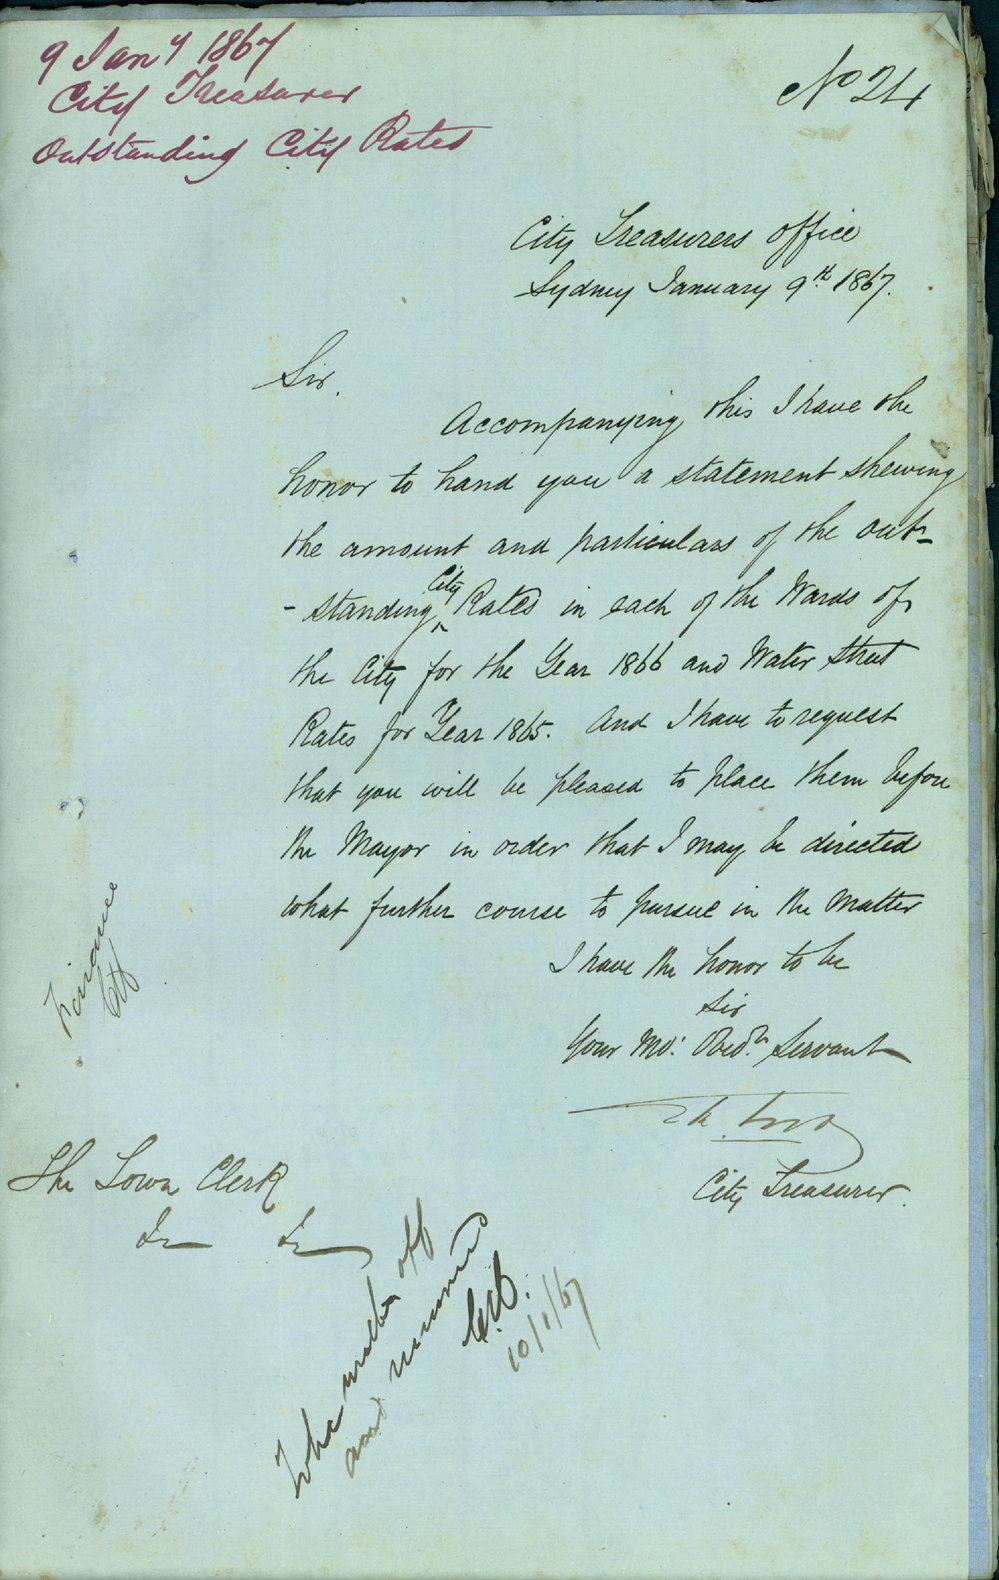 9 Jany 1867
City Treasurer
Outstanding City Rates
No 24
City Treasurers Office
Sydney January 9th 1867.
Sir,
Accompanying this I have the
honor to hand you a statement shewing
the amount and particulars of the out-
- standing City Rates in each of the Wards of
the City for the Year 1866 and Water Street
Rates for Year 1865. And I have to request
that you will be pleased to place them before
the Mayor in order that I may be directed
what further course to pursue in the Matter
I have the honor to be
Sir
Your Mo: Obedt Servant
City Treasurer.
The Town Clerk
Finance
and
10/1/67